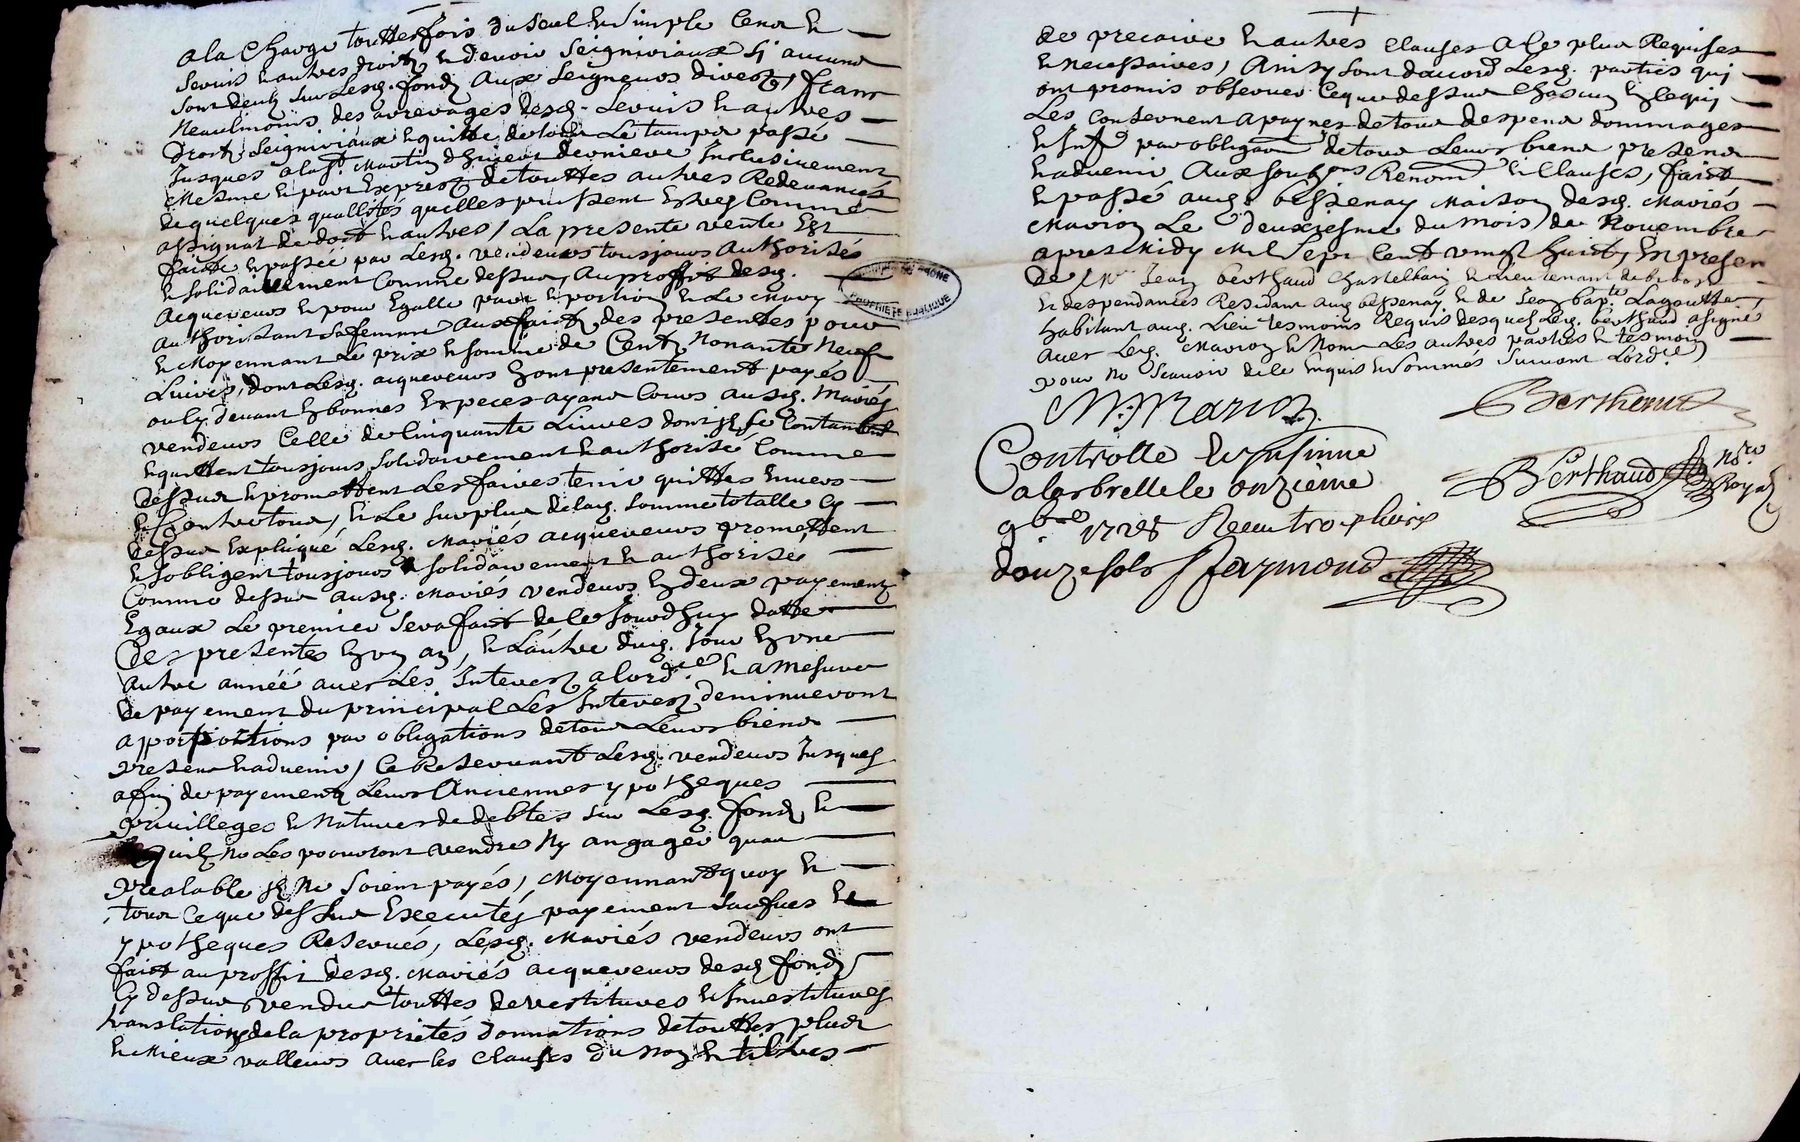 a la Charge touttesfois du seul et simple Cens et
servis et autres droits et devoir seigniriaux sj aucuns
sont deubz sur lesd. fondz aux seigneurs direcz, francs
Neaulmoins des arrerages desd. servis et autres
droits seigniriaux et quitte de tout le temps passé
Jusques a la St. Martin d'hiver derniere Inclusivement
Mesme et par Exprest de touttes autres Redevances
de quelques quallités quelles puissent Estres Comme
assignat de dot et autres, La presente vente Est
faicte et passée par Lesd. vendeurs tousjours authorisés
et solidairement Comme dessus, au proffit desd.
acquereurs et pour Egalle part et portion et Le Mary
authorisant sa femme aux faict des presentes pour
et Moyennant Le prix et somme de Centz Nonante Neuf
Livres, dont Lesd. acquereurs en ont presentement payés
ou Cy devant En bonnes Especes ayans Cours ausd. Mariés
vendeurs Celle de Cinquante Livres dont jls se Contantent
et quittent tousjours solidairement et authorisé Comme
dessus et promettent Les faires tenir quittes Envers
et Contre tous, et Le surplus de lad. somme totalle Cy
dessus Expliqué Lesd. Mariés acquereurs promettent
et s'obligent tousjours solidairement et authorisés
Comme dessus ausd. Mariés vendeurs En deux payementz
Egaux Le premier sera faict de ce Jourdhuy datte
Des presentes En un an, et L'autre dud. Jour En une
autre année avec Les Interez a lordce. et a Mesure
de payement du principal Les Interez deminueront
a portions par obligations de tous Leurs biens
presens et advenir, Ce Reservant Lesd. vendeurs Jusques
a fin de payementz Leurs Anciennes ypotheques
privilleges et Natures de debtes sur Lesd. fondz et
quilz ne Les pourront vendre Ny angager quau
prealable jlz Ne soient payés, Moyennant quoy et
tous Ce que dessus Executés payement saufues et
ypotheques Reservés, Lesd. Mariés vendeurs ont
faict au proffit desd. Mariés acquereurs desd fondz
Cy dessus vendus touttes devestitures et Investitures
translations de la proprietés donnations de touttes plus
et Mieux valleurs avec les clauses du Nom et tiltres
de precaire et autres clauses a Ce plus Requises
et Necessaires, Ainsy sont d'accord Lesd. parties quj
ont promis observer Ce que dessus Chascun En Ce quj
Les Conservent a paynes de tous despens dommages
et Intz par obligaon de tous Leurs biens presens
et advenir Aux soubzons Renoncon et Clauses, faict
et passé aud. bessenay Maison desd. Mariés
Marion Le deuxiesme du Mois de Novembre
apres Midy Mil Sept Cent vingt huict, En presen
De Mr. Jean berthaud Chastellain et Lieutenant de bibost
et despendances Residant aud. bessenay et de Jean bapte. Lagoutte
habitant aud. Lieu tesmoins Requis desquels Led. berthaud a signé
avec Led. Marion et Non Les autres parties et tesmoin
pour Ne Scavoir de Ce Enquis et sommés suivant Lordce.
M: Marion
Bertheaut
Controlle et Insinue
a larbrelle le onzieme
9bre 1728 Receu trois livres
douze sols Raymond
Berthaud Nre Royal
PROPRIETE PUBLIQUE